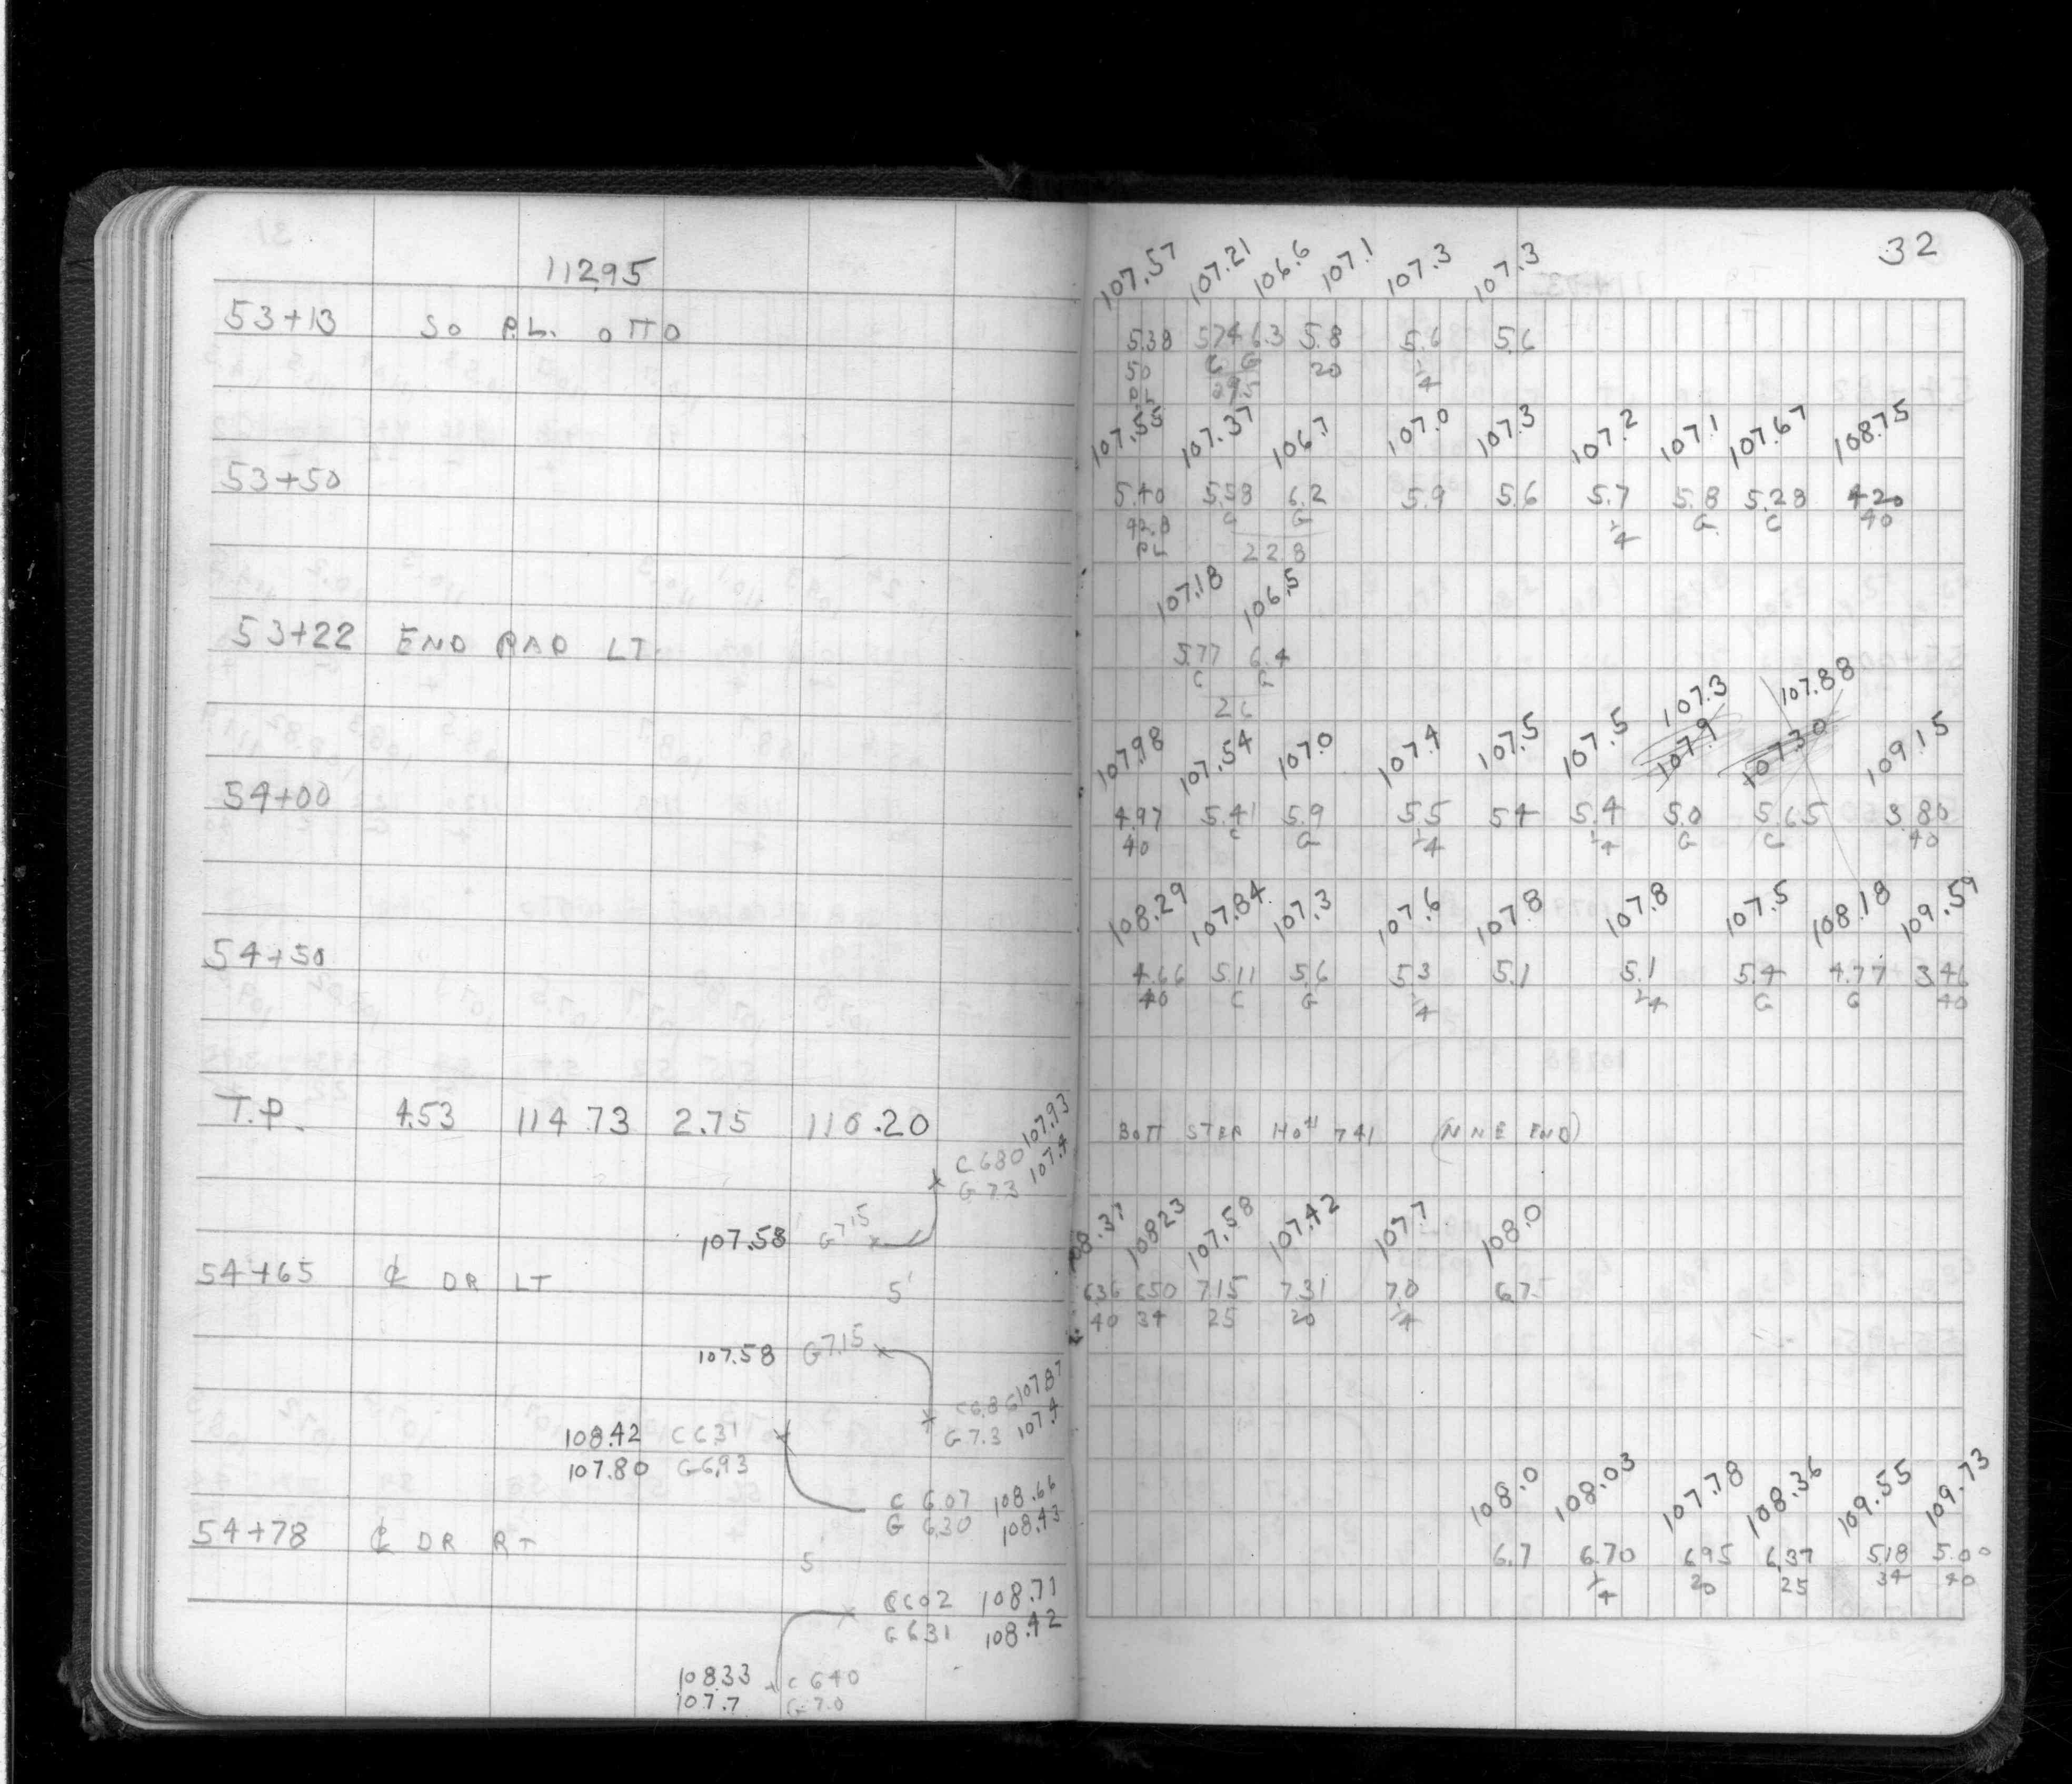 112.95
53+13 SO P.L. OTTO
53+50
53+22 END RAD LT.
54+00
54+50
T.P. 4.53 114.73 2.75 110.20
C 6.80 107.93
G 7.3 107.4
107.58 G 7.15
54+65 ℄ DR LT 5'
107.58 G 7.15
C 6.86 107.87
G 7.3 107.4
108.42 C 6.31
107.80 G 6.93
C 6.07 108.66
G 6.30 108.43
54+78 ℄ DR RT 5
C 6.02 108.71
G 6.31 108.42
108.33 C 6.40
107.7 G 7.0
32
107.57 107.21 106.6 107.1 107.3 107.3
5.38 5.74 6.3 5.8 5.6 5.6
50 C G 20 1/4
PL 29.5
107.55 107.37 106.7 107.0 107.3 107.2 107.1 107.67 108.75
5.40 5.58 6.2 5.9 5.6 5.7 5.8 5.28 4.20
42.8 C G 1/4 G C 40
PL 22.8
107.18 106.5
5.77 6.4
C G
26
107.3 107.88
107.98 107.54 107.0 107.4 107.5 107.5 107.9 107.30 109.15
4.97 5.41 5.9 5.5 5.4 5.4 5.0 5.65 3.80
40 C G 1/4 1/4 G C 40
108.29 107.84 107.3 107.6 107.8 107.8 107.5 108.18 109.59
4.66 5.11 5.6 5.3 5.1 5.1 5.4 4.77 3.46
40 C G 1/4 1/4 G C 40
BOTT STEP HO# 741 (N N E END)
108.37 108.23 107.58 107.42 107.7 108.0
6.36 6.50 7.15 7.31 7.0 6.7
40 34 25 20 1/4
108.0 108.03 107.78 108.36 109.55 109.73
6.7 6.70 6.95 6.37 5.18 5.00
1/4 20 25 34 40